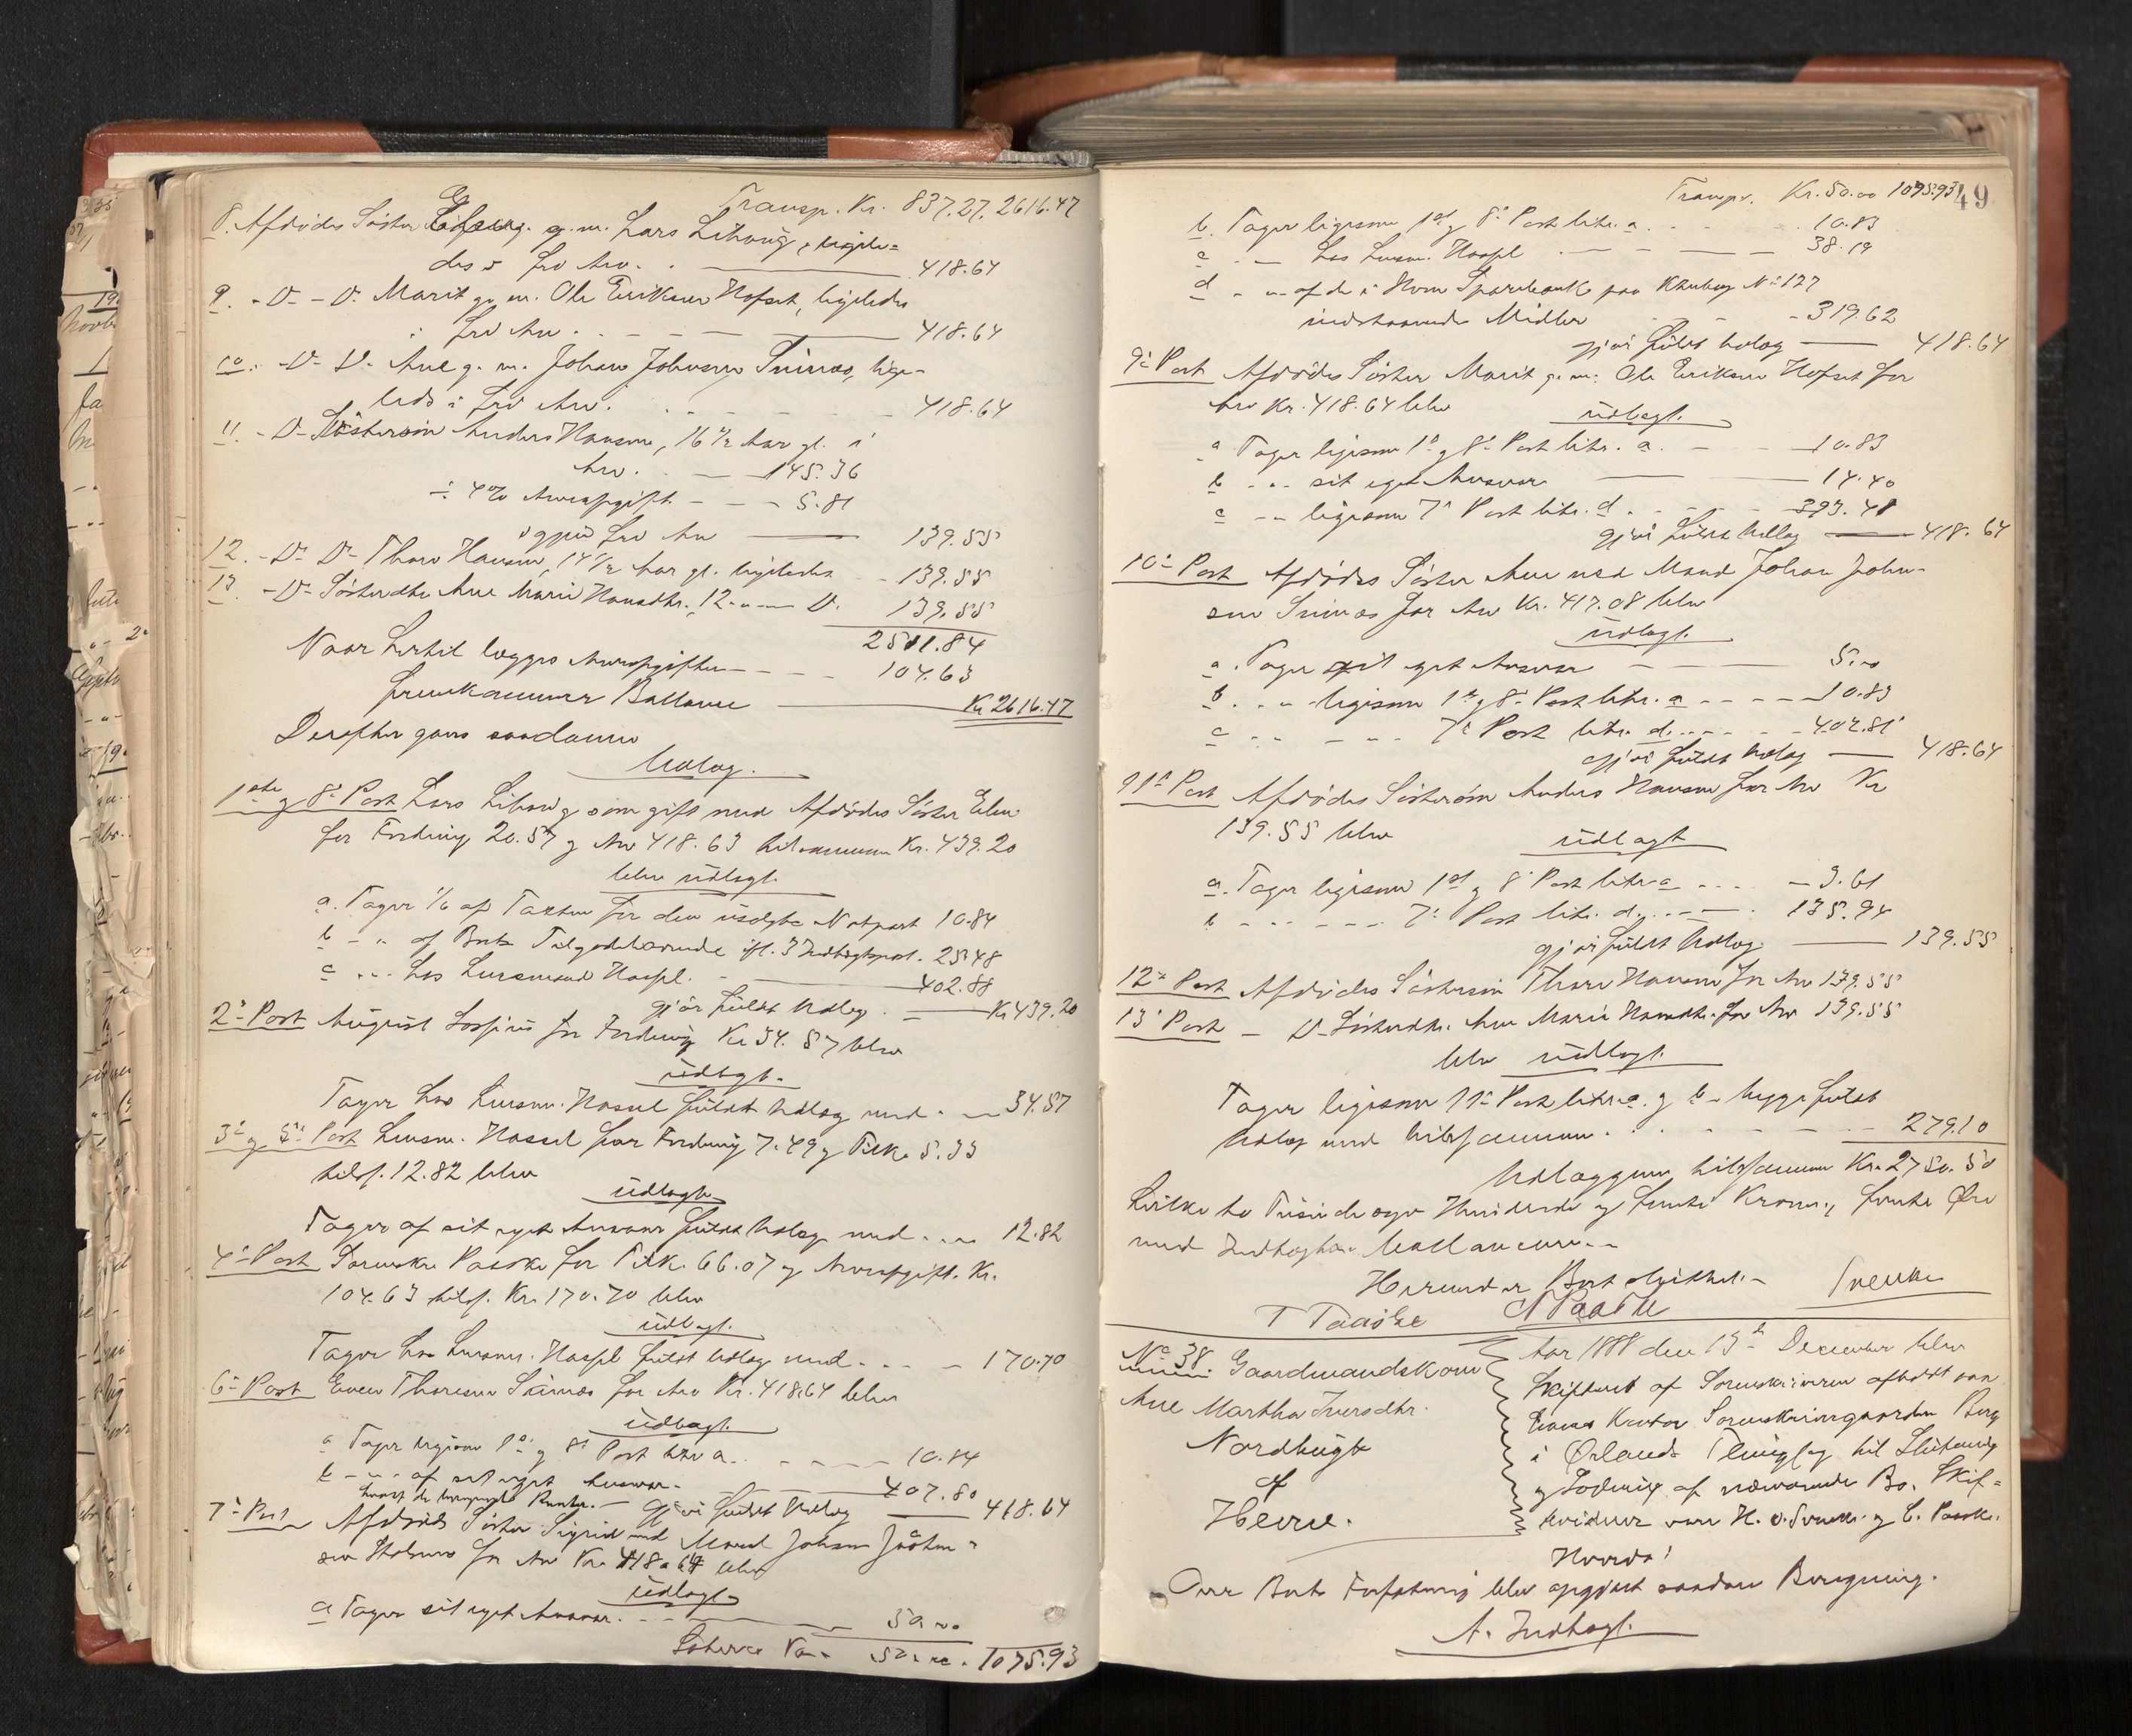 Transp. Kr. 837.27. 2616.47
8. Afdødes Søster g. m. Lars Lihaug, ligele=
des i Lod Arv. . 418.64
9. -D- -D- Marit g. m. Ole Eriksen Hofset, ligeledes
i Lod Arv . 418.64
10. -D- D- Ane g. m. Johan Johnsen lige-
leds i Lod Arv. 418.64
11. -D- Søstersøn Anders Hansen, 16 1/2 Aar gl. i
Arv. 145.36
÷ 4% Arveafgift - - - 5.81
Lod Arv 139.55
12. -D- D- Thore Hansen, 14 1/2 Aar gl. ligeledes - 139.55
13. -D- Søsterdtr Ane Marie Hansdtr. 12 - " - D. 139.55
2511.84
Naar hertil lægges Arveafgiften - - - 104.63
fremkommer Ballance Kr 2616.47
Derefter gjøres saadanne
Udlæg.
1ste g 8de Post Lars Lihaug som gift med Afdødes Søster
for Fordring 20.57 g Arv 418.63 tilsammen Kr. 439.20
blev udlagt.
a. Tager 1/6 af Taxten for den usolgte Notpart 10.84
b - " af Boets Tilgodehavende ifl. 3 Indtægtspost. 25.48
c - " - hos Lensmand Hassel. 402.88
gjør fuldt Udlæg . Kr 439.20
2- Post August for Fordring Kr 34.57 blev
udlagt.
Tager hos Lensm. Hassel fuldt Udlæg med - 34.57
3- g 5- Post Lensm. Hassel for Fordring 7.49 g 5.33
tils. 12.82 blev
udlagt
Tager af sit eget Ansvar fuldt Udlæg med . . . 12.82
4- Post Paaske for 66.07 g Arveafgift. Kr.
104.63 tils. Kr. 170.70 blev
udlagt.
Tager hos Lensm. Hassel fuldt Udlæg med - - - - 170.70
6- Post Thoresen for Arv Kr. 418.64 blev
udlagt.
a Tager ligesom 1- g 8- Post litr a. . - - - 10.84
b - " - af sit eget Ansvar. 407.80
gjør fuldt Udlæg 418.64
7- Post Afdødes Søster Sigrid med Mand Johan
for Arv Kr. 418.64 blev
udlagt
a Tager sit eget Ansvar. - - 50.00
Kr. 50.00 . 1075.93
Transp. Kr. 50.00 1075.93
49
b. Tager ligesom 1st g 8- Post litr. a . . 10.83
c - " - hos Lensm. Hassel 38.19
d - " - af de i Sparebank paa No 127
indestaaende Midler - 319.62
gjør fuldt Udlæg 418.64
9- Post Afdødes Søster Marit g. m. Ole Eriksen Hofset for
Arv Kr. 418.64 blev udlagt.
a Tager ligesom 1- g 8- Post litr. a. 10.83
b - " - sit eget Ansvar 14.40
c - " - ligesom 7- Post litr. d. . . 393.41
gjør fuldt Udlæg 418.64
10- Post Afdødes Søster Ane med Mand Johan John-
sen for Arv Kr. 417.08 blev
udlagt.
a. Tager sit eget Ansvar - - 5.00
b. . - " - ligesom 1- g 8- Post litr. a - - - - 10.83
c - " - - " - 7- Post litr. d. . . 402.81
gjør fuldt Udlæg 418.64
11- Post Afdødes Søstersøn Anders Hansen for Arv Kr
139.55 blev udlagt
a. Tager ligesom 1st g 8- Post litr a . . . . 3.61
b - - - - 7- Post litr. d. . . 135.94
gjør fuldt Udlæg. 139.55
12- Post Afdødes Søstersøn Thore Hansen for Arv 139.55
13- Post - D- Søsterdtr. Ane Marie Hansdtr. for Arv 139.55
blev udlagt.
Tager ligesom 11- Post litr a. g b- begge fuldt
Udlæg med tilsammen. . . . 279.10
Udlæggene tilsammen Kr. 2750.50
hvilke to Tusinde syv Hundrede g femti Kroner, femti Øre
med Indtægten ballancerer. -
Herunder Boet sluttet. -
T Paaske
No 38. Gaardmandskone
Ane Martha Iversdtr.
Nordbugt
af
Hevne.
Aar 1888 den 13- December blev
Skifteret af Sorenskriveren afholdt paa
hans Kontor Sorenskrivergaarden Berg
i Ørlands Thinglag til Slutning
g Lodning af nærværende Bo. Skif=
tevidner vare H. g C. Paaske.
Hvorda!
Over Boets Forfatning blev opgjort saadan Beregning.
A. Indtægt.